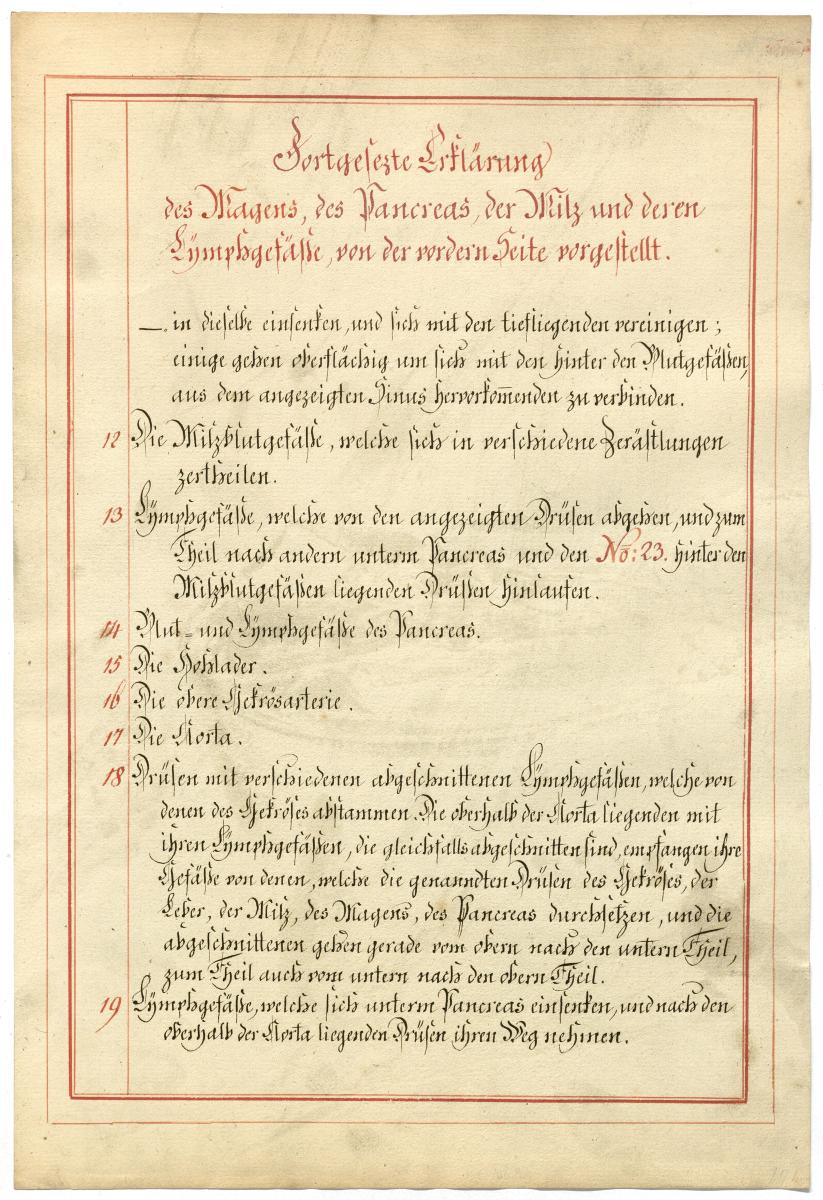 Fortgesezte Erklärung
des Magens, des Pancreas, der Milz und deren
Lÿmphgefäße, von der vordern Seite vorgestellt.
—. in dieselbe einsenken, und sich mit den tiefliegenden vereinigen;
einige gehen oberflächig um sich mit den hinter den Blutgefäßen,
aus dem angezeigten Sinus hervorkom̅enden zu verbinden.
12 Die Milzblutgefäße, welche sich in verschiedene Zerästlungen
zertheilen.
13 Lÿmphgefäße, welche von den angezeigten Drüsen abgehen, und zum
Theil nach andern unterm Pancreas und den No: 23. hinter den
Milzblutgefäßen liegenden Drüßen hinlaufen.
14 Blut= und Lÿmphgefäße des Pancreas.
15 Die Hohlader.
16 Die obere Gekrösarterie.
17 Die Aorta.
18 Drüsen mit verschiedenen abgeschnittenen Lÿmphgefäßen, welche von
denen des Gekröses abstammen. Die oberhalb der Aorta liegenden mit
ihren Lÿmphgefäßen, die gleichfalls abgeschnitten sind, empfangen ihre
Gefäße von denen, welche die genanndten Drüsen des Gekröses, der
Leber, der Milz, des Magens, des Pancreas durchsetzen, und die
abgeschnittenen gehen gerade vom obern nach den untern Theil,
zum Theil auch vom untern nach den obern Theil.
19 Lÿmphgefäße, welche sich unterm Pancreas einsenken, und nach den
oberhalb der Aorta liegenden Drüsen ihren Weg nehmen.